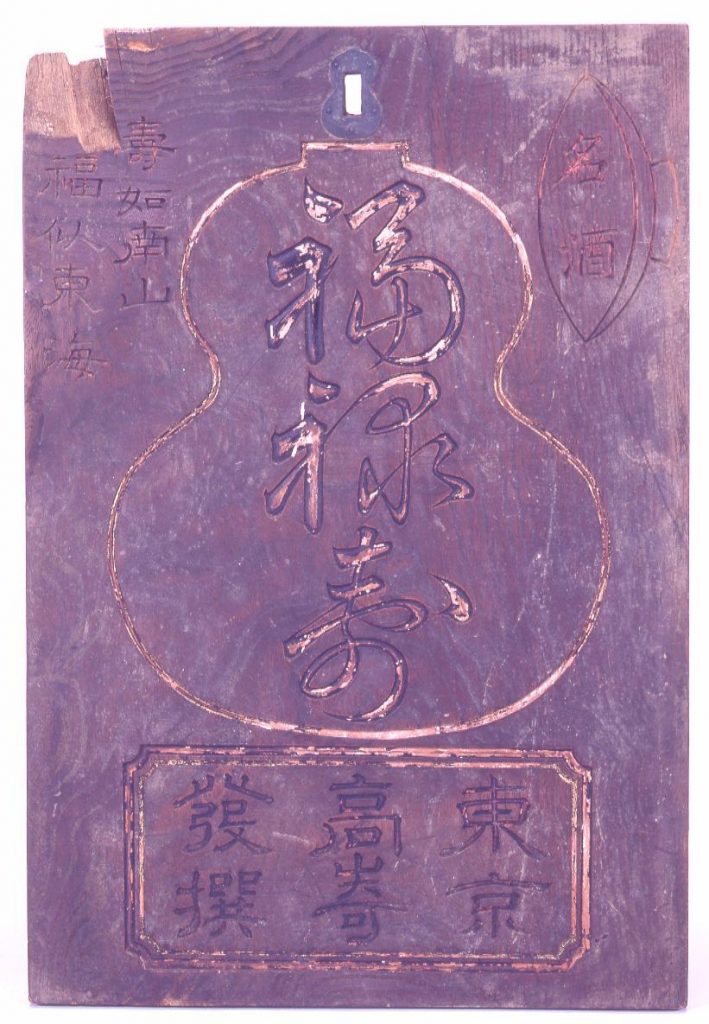 名酒
福禄寿
壽如南山
福似東海
東京
高嵜
發撰